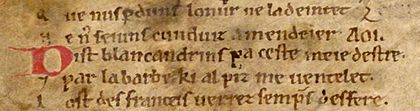 ue nus pduns lonur ne la deintet
N e n seiuns cunduit a mendeier AOI.
Dist blancandrins pa ceste meie destre
7 par la barbe ki al piz me ventelet.
L ost des franceis verrez semps desfere.